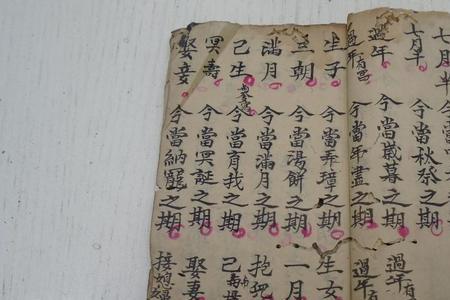 七月半
七月半 今當秋祭之期
過年 今當歲暮之期 過年有
過年有 今當年盡之期 過年
生子 今當弄璋之期 生女
三朝 今當湯餅之期 一月
滿月 今當滿月之期 抱
己生 今當育我之期 己
冥壽 今當冥誕之期 娶妻
娶妾 今當納寵之期 接媳